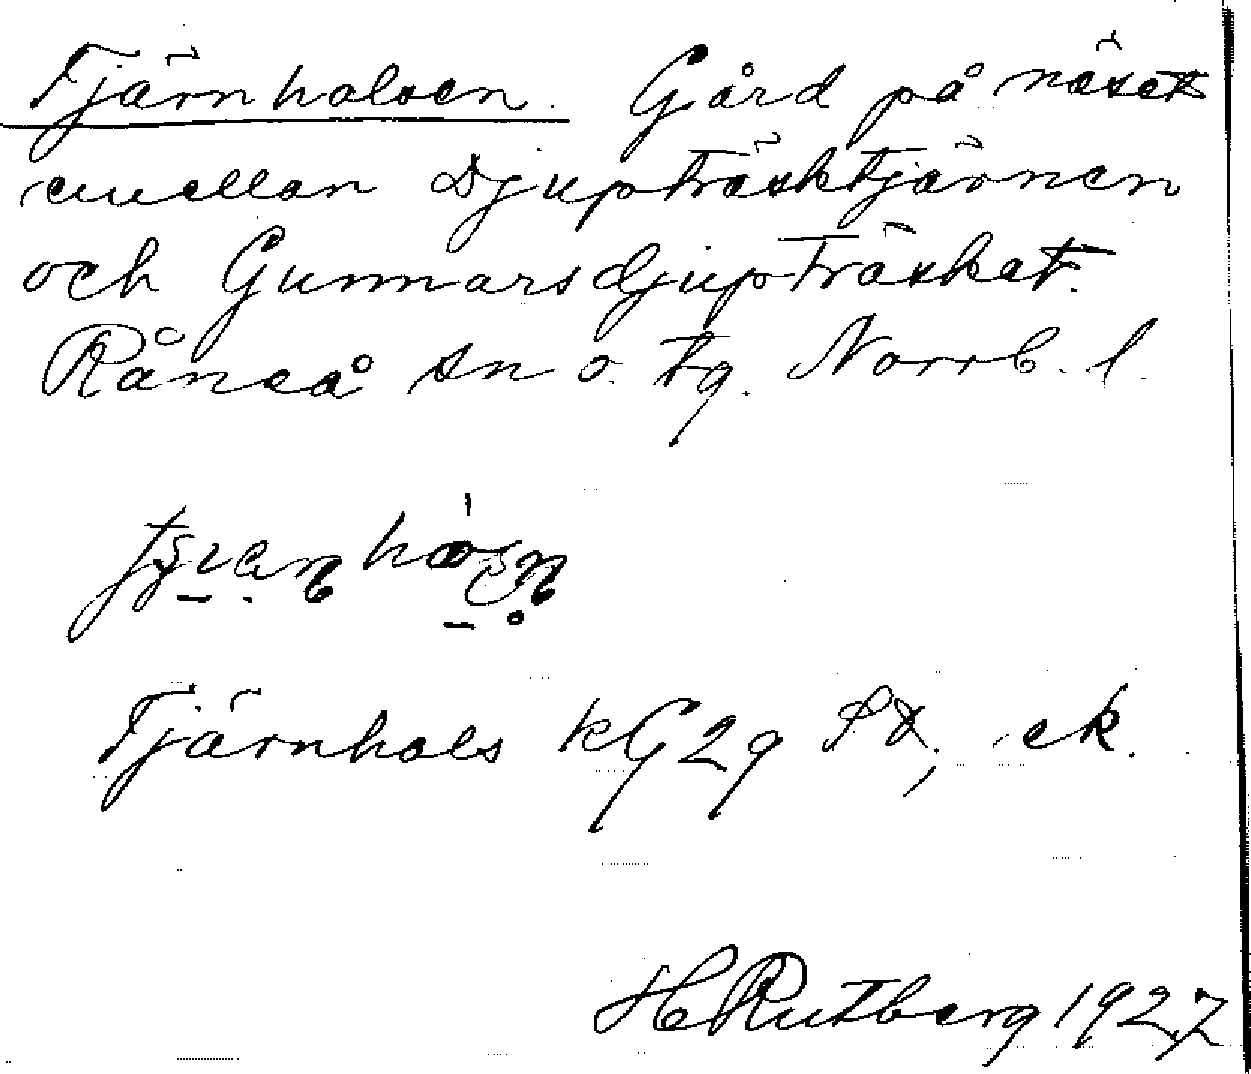 Tjärnhalsen. Gård på näset
mellan Djupträsktjärnen
och Gunnarsdjupträsket.
Råneå sn o. tg. Norrb. l.
Tjärnhals kG 29 SV, ek.
H Rutberg 1927